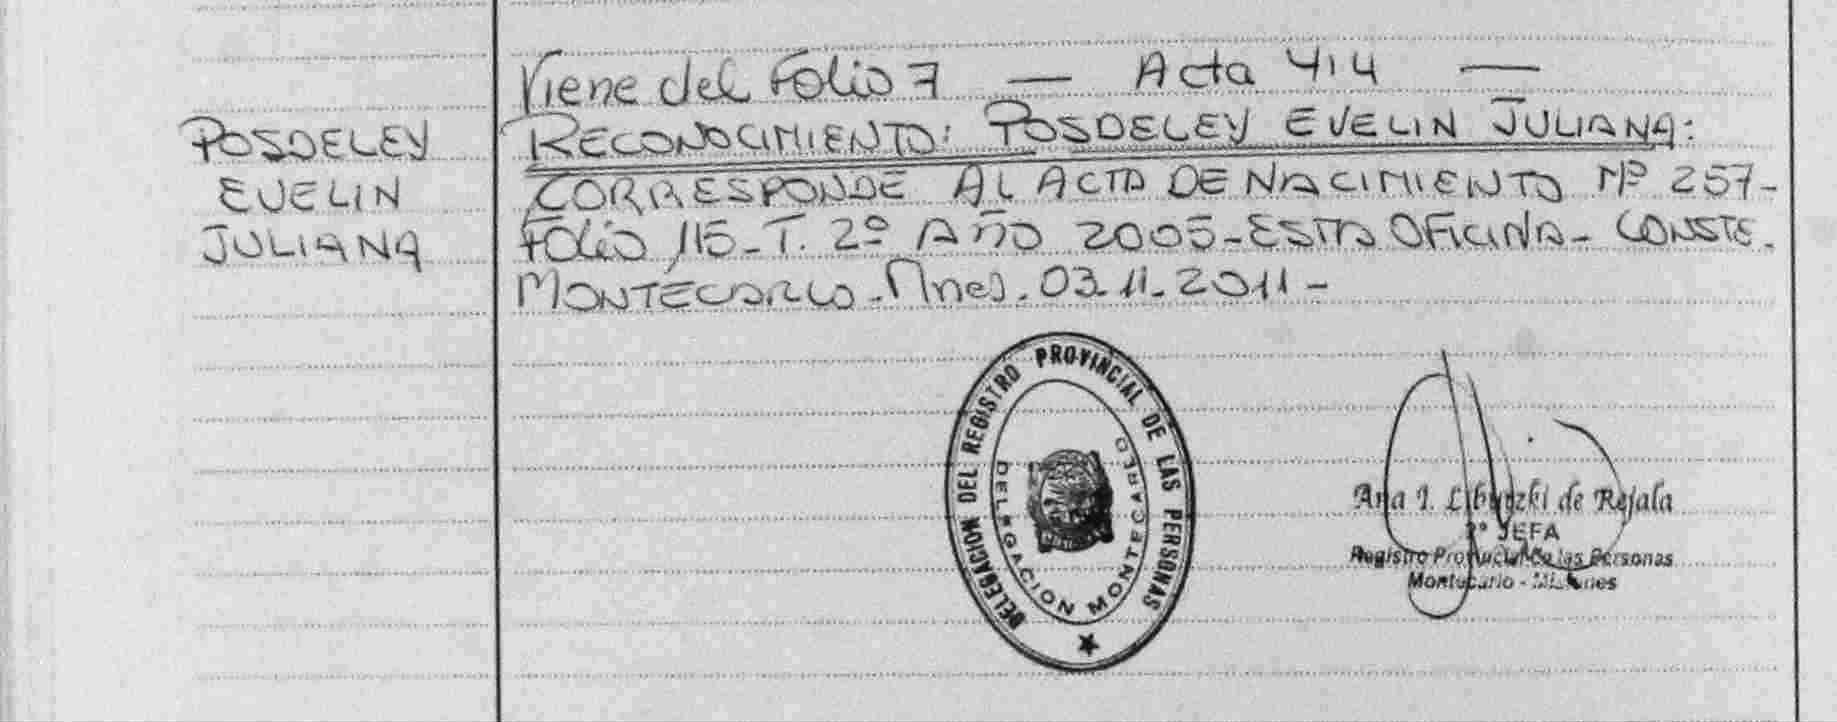 POSDELEY
EVELIN
JULIANA
Viene del Folio 7 — Acta 414 —
RECONOCIMIENTO: POSDELEY EVELIN JULIANA:
CORRESPONDE AL ACTA DE NACIMIENTO Nº 257-
Folio 115-T. 2º Año 2005-ESTA OFICINA- CONSTE.
MONTECARLO-Mnes. 03.11.2011-
DELEGACION DEL REGISTRO PROVINCIAL DE LAS PERSONAS
DELEGACION MONTECARLO
Ana I. de Rejala
2º JEFA
Registro Provincial de las Personas
Montecarlo - Misiones